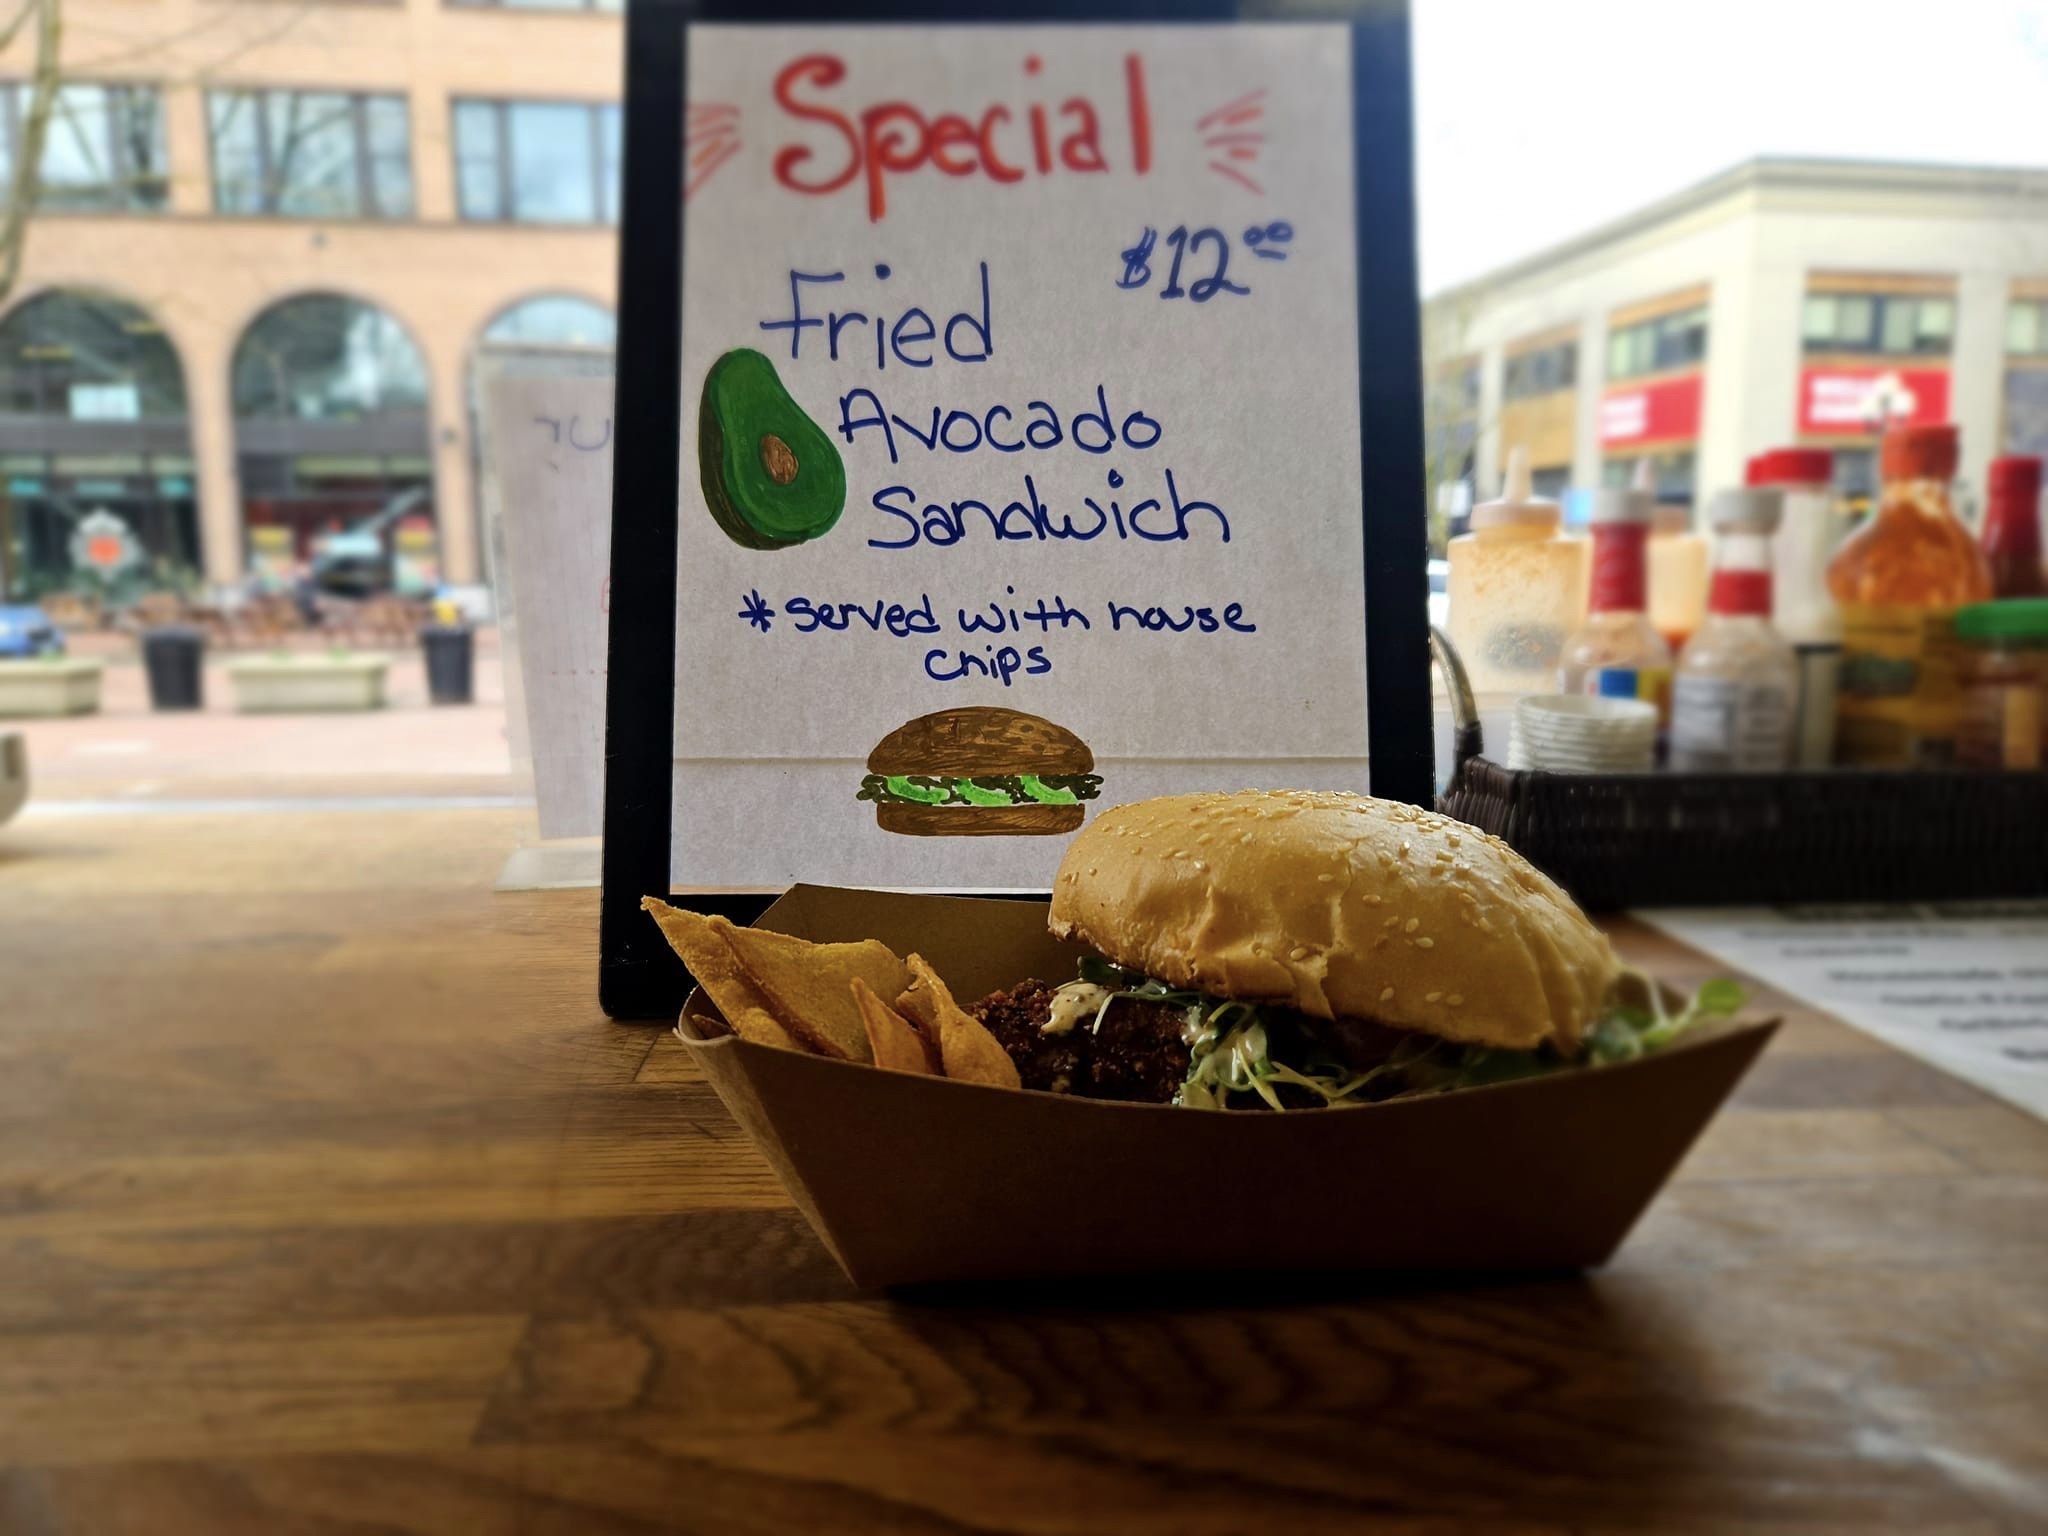 Special
$12.00
Fried
Avocado
Sandwich
* served with house
chips